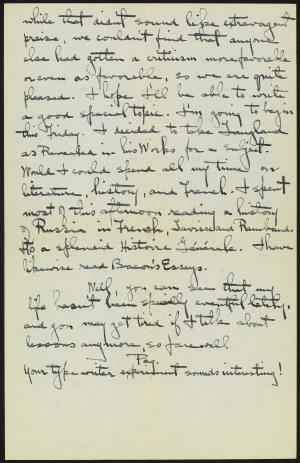 while that didn't sound like extravagent
praise, we couldn't find that anyone
else had gotten a criticism more favorable
or even as favorable, so we are quite
pleased. I hope I'll be able to write
a good special topic. I'm going to begin
this Friday. I decided to use
as Revealed in his Works for a subject.
Would I could spend all my time on
literature, history, and French. I spent
most of this afternoon reading a history
of Russia in French, Lavisse and Rambaud.
It's a splendid Histoire Générale. I have
likewise read Bacon's Essays.
Well, you can see that my
life hasn't been specially eventful lately,
and you may get tired if I talk about
lessons anymore, so farewell
Peg.
Your type writer experiment sounds interesting!